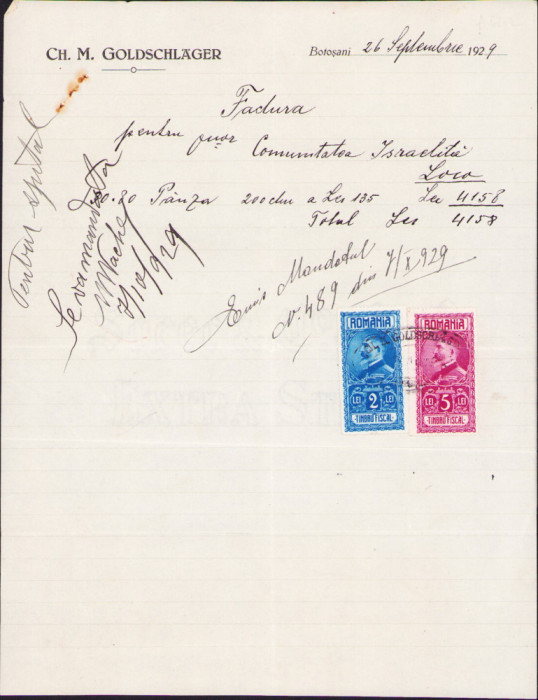 CH. M. GOLDSCHLÄGER
Botoşani 26 Septembrie 1929
Factura
pentru onor Comunitatea Israelită
Loco
30.80 Pânza 200cm a Lei 135 Lei 4158
Total Lei 4158
Pentru spital
Se va mandata
7/10/929
Emis Mandatul
N 489 din 7/X 929
ROMANIA
2
LEI LEI
TIMBRU FISCAL
ROMANIA
5
LEI LEI
TIMBRU FISCAL
GOLDSCHL